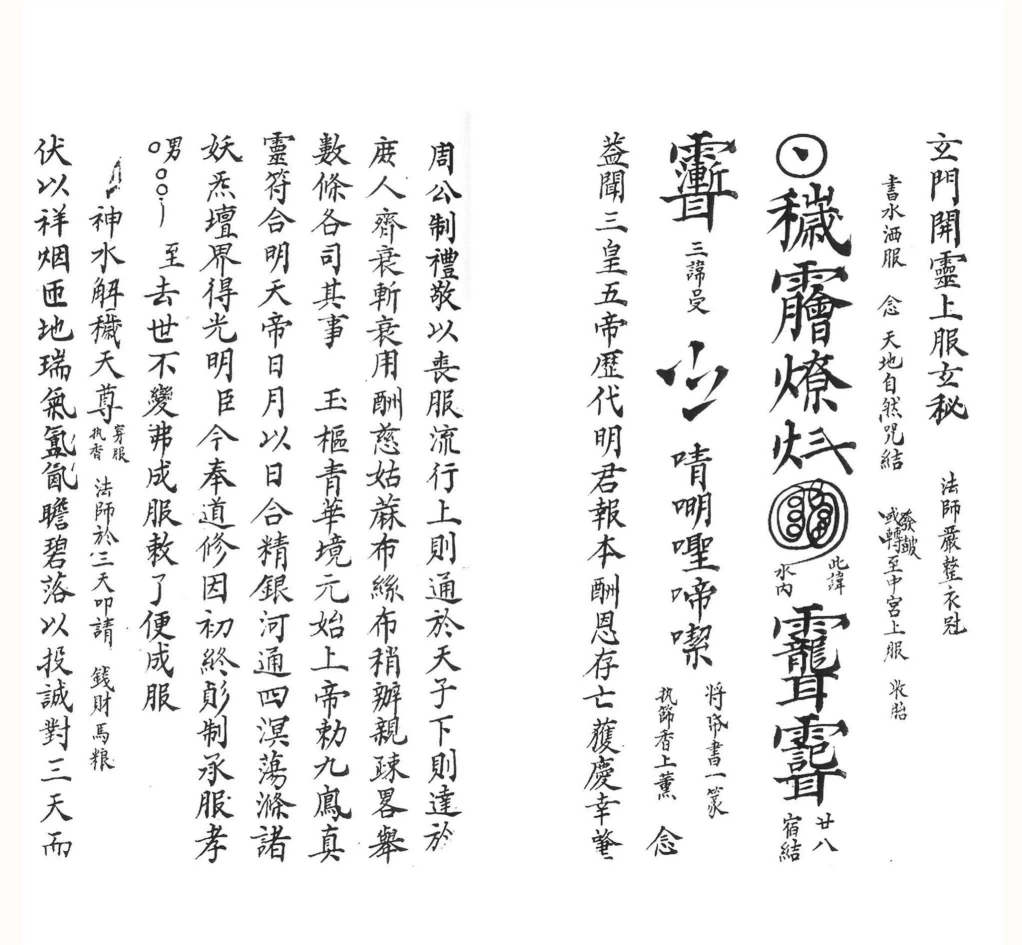 玄門開靈上服玄秘　法師嚴整衣冠
書水洒服　念　天地自然咒結　發皷　或轉　至中宮上服　收胎
穢　燎　此諱　水內　廿八　宿結
三諱　噀　將　書一篆　执節香上薰　念
蓋聞三皇五帝歷代明君報本酬恩存亡獲慶幸
周公制禮敬以喪服流行上則通於天子下則達於
庻人齊衰斬衰用酬慈姑蔴布絲布稍辦親疎畧舉
數條各司其事　玉樞青華境元始上帝勅九鳳真
靈符合明天帝日月以日合精銀河通四溟蕩滌諸
妖炁壇界得光明臣今奉道修因初終制承服孝
男　至去世不變弗成服敕了便成服
神水解穢天尊　穿服　执香　法師於三天叩請　錢財馬粮
伏以祥烟匝地瑞氣氤氳瞻碧落以投誠對三天而